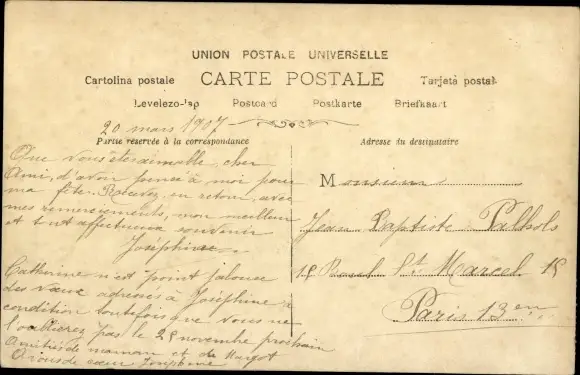 UNION POSTALE UNIVERSELLE
Cartolina postale CARTE POSTALE Tarjeta postal
Levelezo-lap Postcard Postkarte Briefkaart
20 mars 1907
Partie réservée à la correspondance
Adresse du destinataire
Que vous êtes aimable, cher
Ami, d'avoir pensé à moi pour
ma fête. Recevez, en retour, avec
mes remerciements, mon meilleur
et tout affectueux souvenir
Joséphine
Catherine n'est point jalouse
des vœux adressés à Joséphine à
condition toutefois que vous ne
l'oublierez pas le 25 novembre prochain
Amitiés de maman et de Margot
A vous de cœur Joséphine
Monsieur
Jean Baptiste
15 Boul. St Marcel 15
Paris 13 en